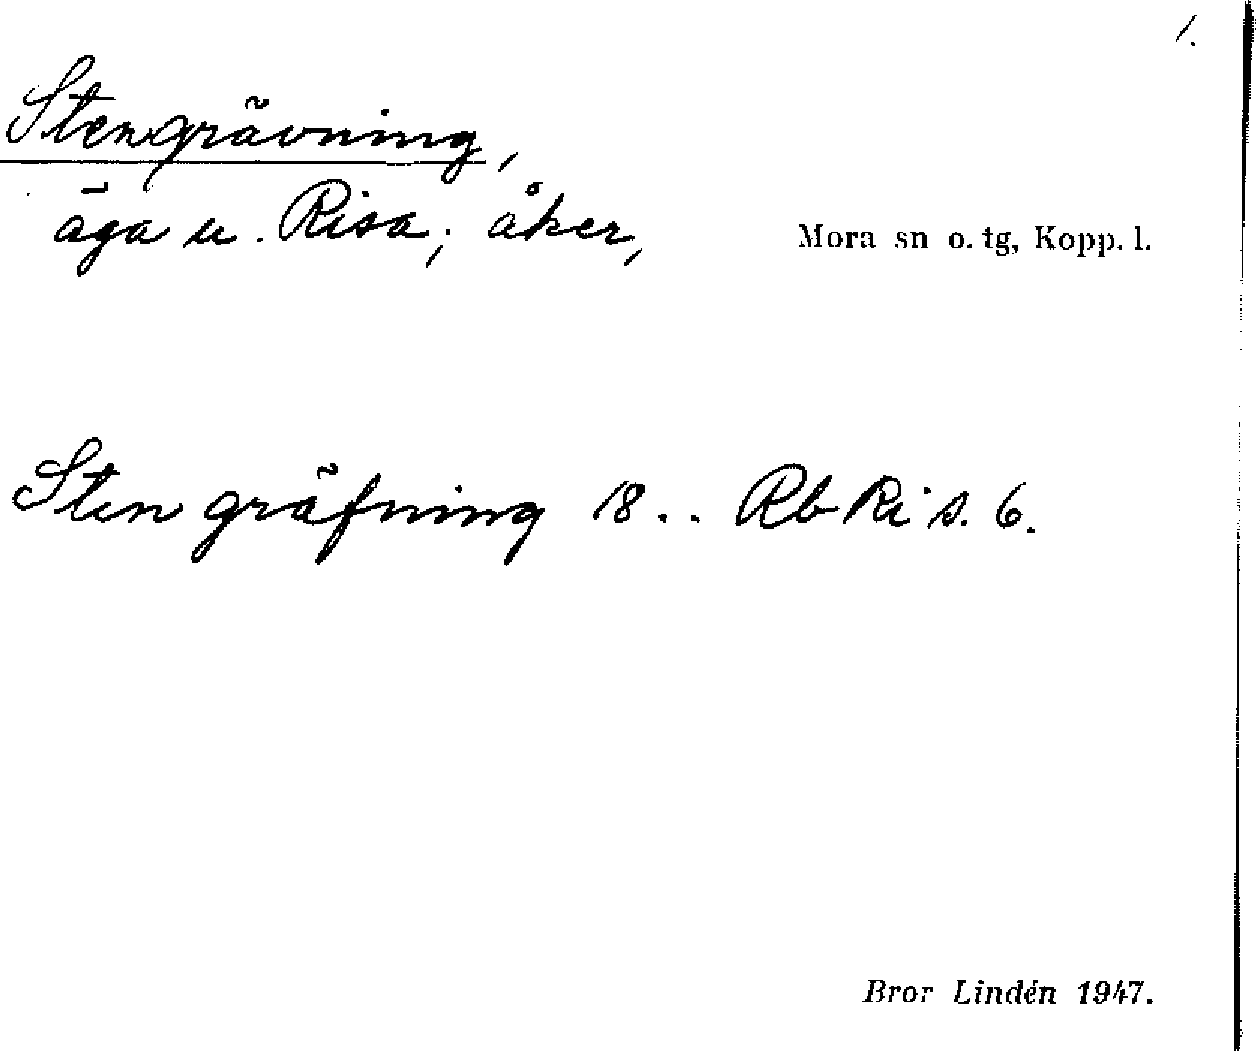 1.
Stengrävning,
äga u. Risa; åker,
Mora sn o. tg, Kopp. l.
Sten gräfning 18.. Rb Ri s. 6.
Bror Lindén 1947.